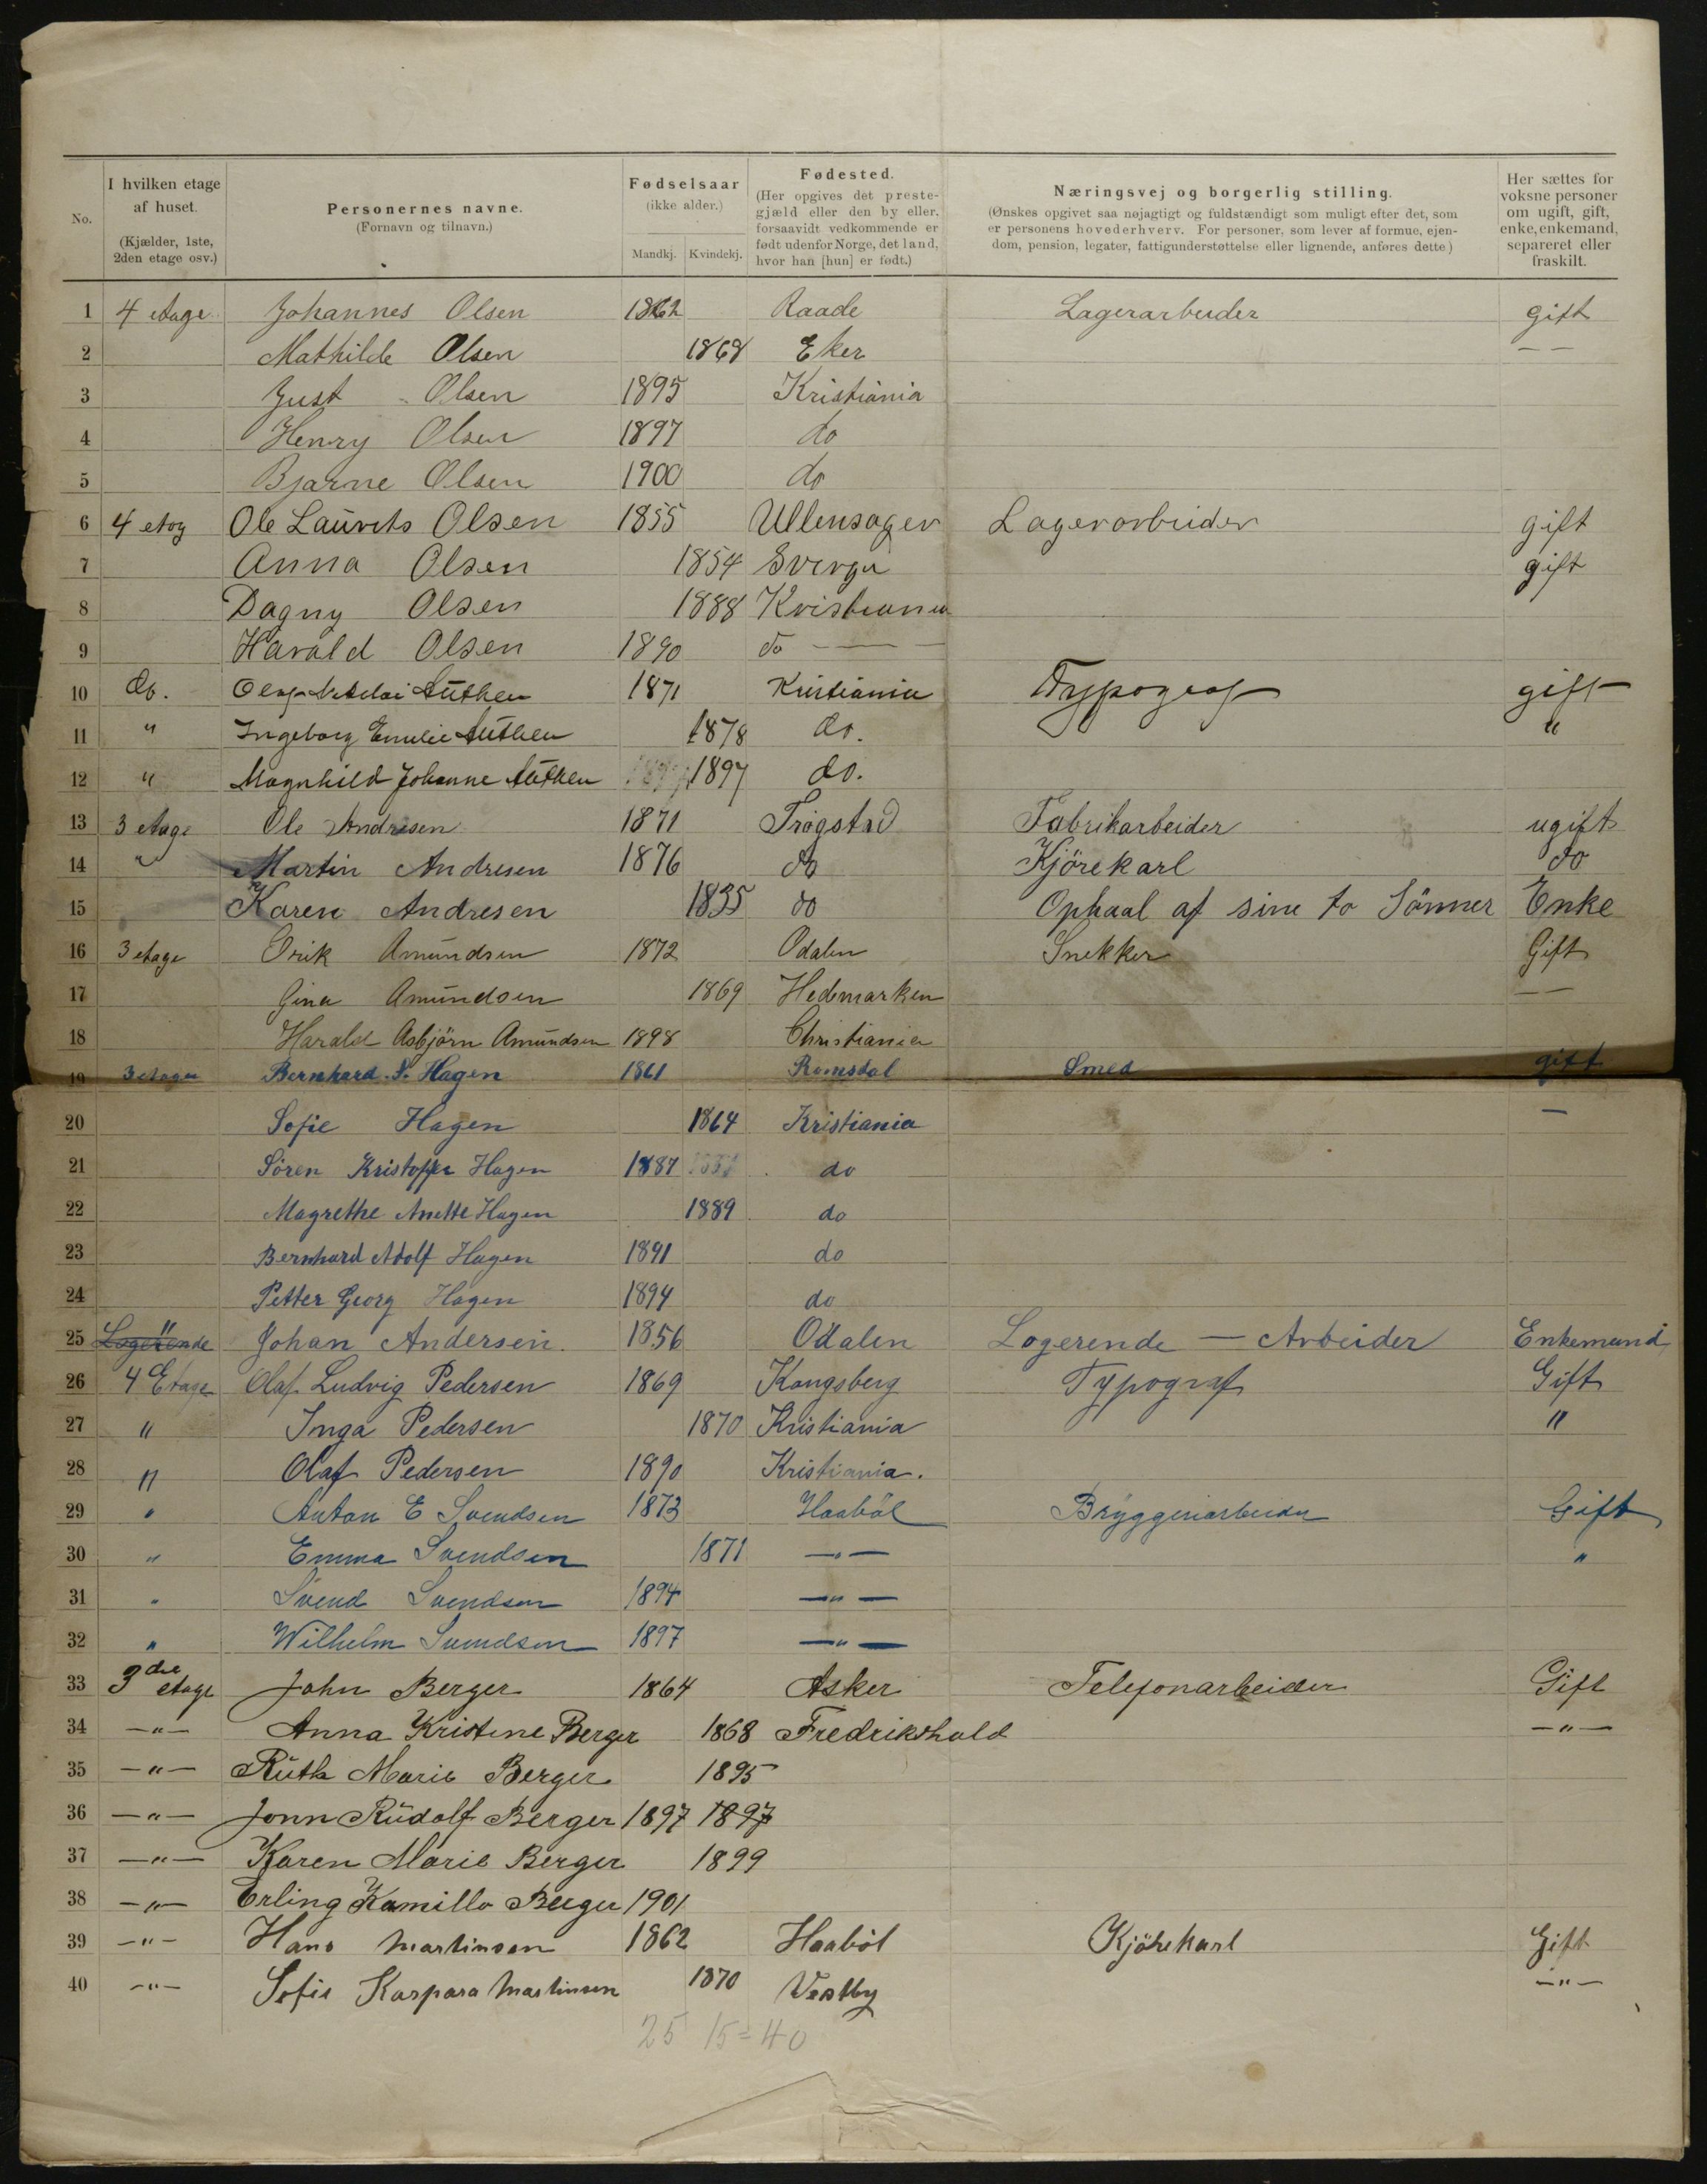 No.
I hvilken etage af huset. (Kjælder, 1ste, 2den etage osv.)
Personernes navne. (Fornavn og tilnavn.)
Fødselsaar (ikke alder.) Mandkj. Kvindekj.
Fødested. (Her opgives det prestegjæld eller den by eller, forsaavidt vedkommende er født udenfor Norge, det land, hvor han [hun] er født.)
Næringsvej og borgerlig stilling. (Ønskes opgivet saa nøjagtigt og fuldstændigt som muligt efter det, som er personens hovederhverv. For personer, som lever af formue, ejendom, pension, legater, fattigunderstøttelse eller lignende, anføres dette)
Her sættes for voksne personer om ugift, gift, enke, enkemand, separeret eller fraskilt.
1 4 etage Johannes Olsen 1862 Raade Lagerarbeider gift
2 Mathilde Olsen 1868 Eker — —
3 Just Olsen 1895 Kristiania
4 Henry Olsen 1897 do
5 Bjarne Olsen 1900 do
6 4 etag Ole Laurits Olsen 1855 Ullensager Lagerarbeider gift
7 Anna Olsen 1854 Sverge gift
8 Dagny Olsen 1888 Kristiania
9 Harald Olsen 1890 do — —
10 do. Olaf Luthen 1871 Kristiania Typograf gift
11 " Ingeborg Emilie Luthen 1878 do. "
12 " Magnhild Johanne Luthen 1897 1897 do.
13 3 etage Ole Andresen 1871 Trøgstad Fabrikarbeider ugift
14 " Martin Andresen 1876 do Kjörekarl do
15 Karen Andresen 1835 do Ophaal af sine to Sönner Enke
16 3 etage Erik Amundsen 1872 Odalen Snekker Gift
17 Gina Amundsen 1869 Hedemarken — —
18 Harald Asbjörn Amundsen 1898 Christiania
19 3 etage Bernhard S. Hagen 1861 Romsdal Smed gift
20 Sofie Hagen 1864 Kristiania —
21 Sören Kristoffer Hagen 1887 1887 do
22 Magrethe Anette Hagen 1889 do
23 Bernhard Adolf Hagen 1891 do
24 Petter Georg Hagen 1894 do
25 Logerende " Johan Andersen 1856 Odalen Logerende — Arbeider Enkemand
26 4 Etage Olaf Ludvig Pedersen 1869 Kongsberg Typograf Gift
27 " Inga Pedersen 1870 Kristiania "
28 " Olaf Pedersen 1890 Kristiania.
29 " Anton E Svendsen 1873 Haaböl Bryggeriarbeider Gift
30 " Emma Svendsen 1871 —"— "
31 " Svend Svendsen 1894 —"—
32 " Wilhelm Svendsen 1897 —"—
33 3die etage John Berger 1864 Asker Telefonarbeider Gift
34 —"— Anna Kristine Berger 1868 Fredrikshald —"—
35 —"— Ruth Marie Berger 1895
36 —"— Jonn Rudolf Berger 1897 1897
37 —"— Karen Marie Berger 1899
38 —"— Erling Kamillo Berger 1901
39 —"— Hans Martinsen 1862 Haaböl Kjörekarl Gift
40 —"— Sofie Kaspara Martinsen 1870 Vestby —"—
25 15 = 40